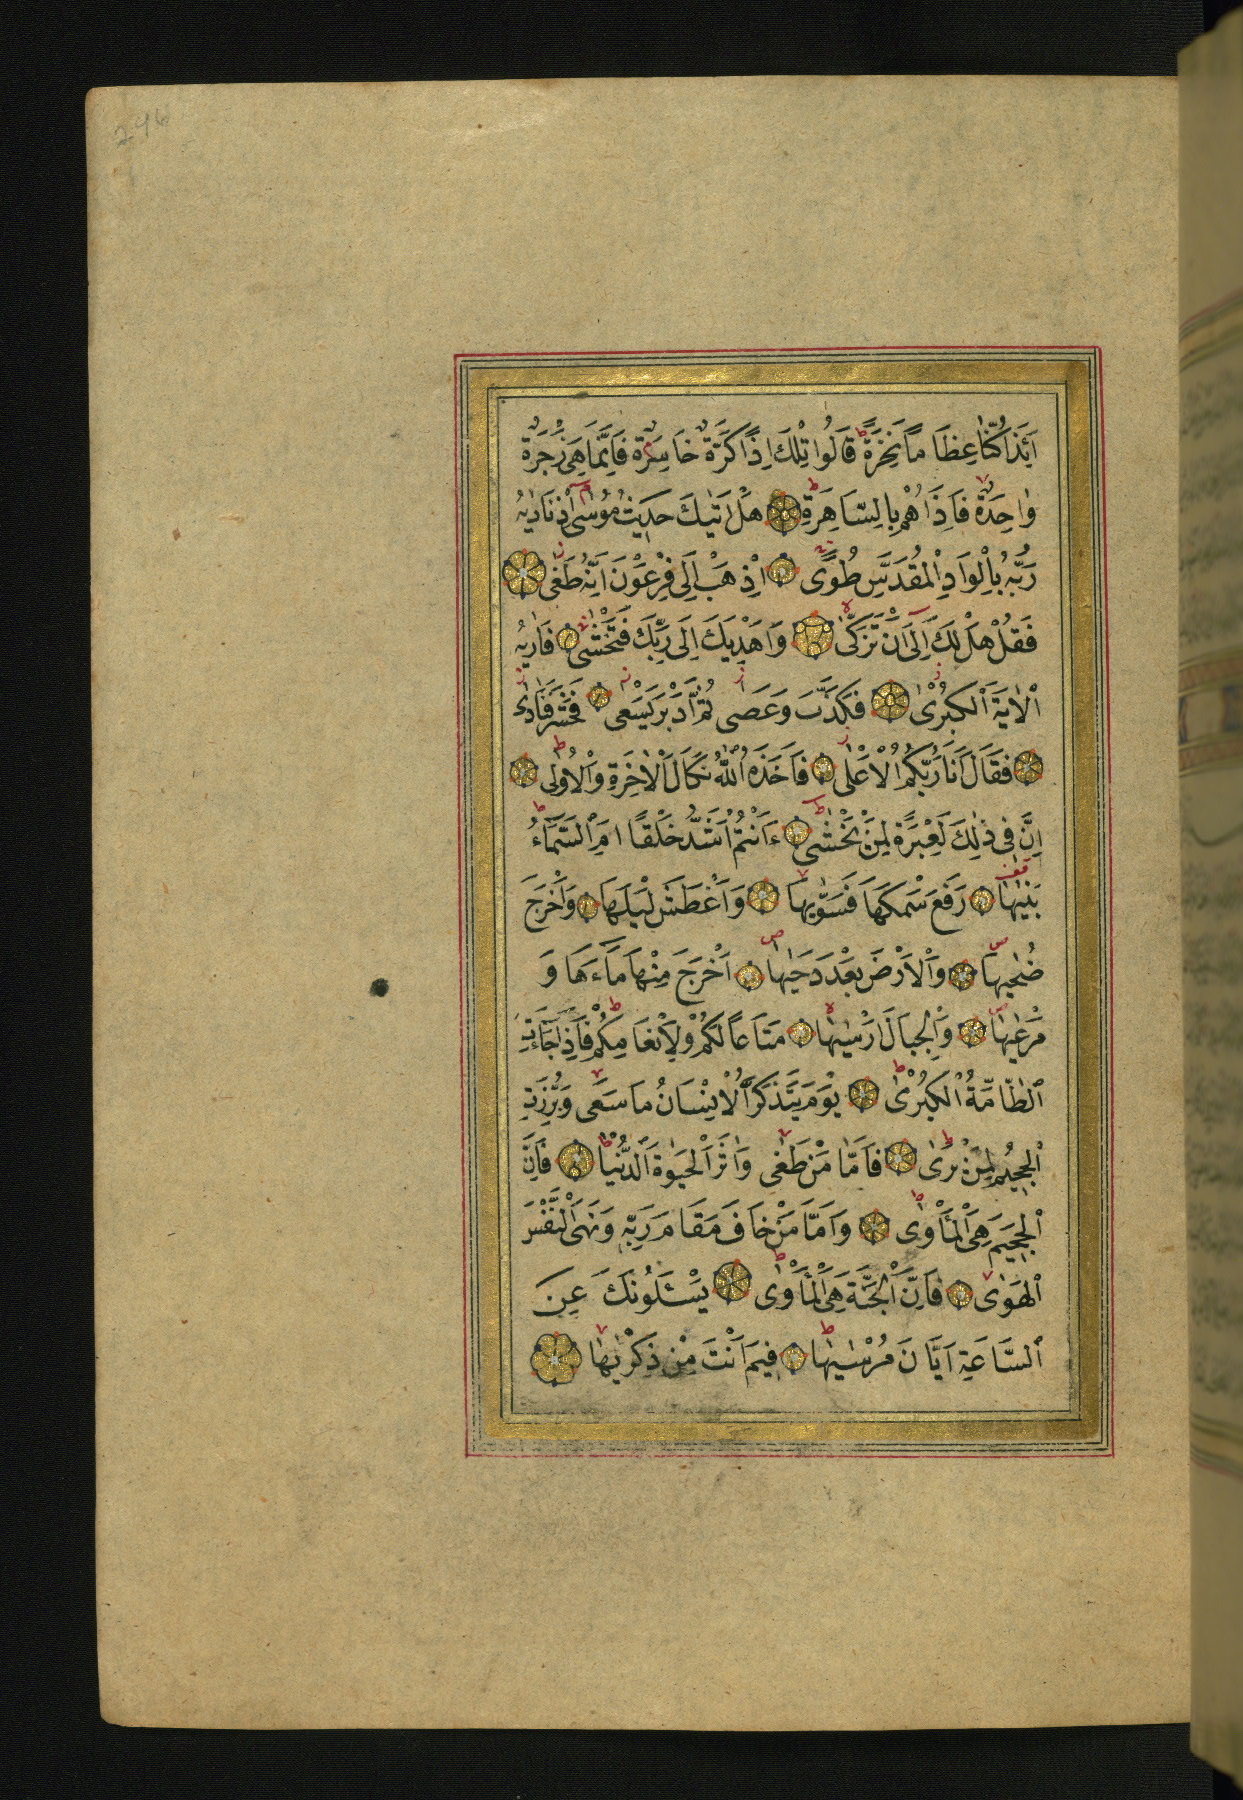 246
اَئِذَا كُنَّا عِظَامًا نَخِرَةً قَالُوا تِلْكَ اِذًا كَرَّةٌ خَاسِرَةٌ فَاِنَّمَا هِىَ زَجْرَةٌ
وَاحِدَةٌ فَاِذَا هُمْ بِالسَّاهِرَةِ هَلْ اَتٰيكَ حَدِيثُ مُوسٰى اِذْ نَادٰيهُ
رَبُّهُ بِالْوَادِ الْمُقَدَّسِ طُوًى اِذْهَبْ اِلٰى فِرْعَوْنَ اِنَّهُ طَغٰى
فَقُلْ هَلْ لَكَ اِلٰى اَنْ تَزَكّٰى وَاَهْدِيَكَ اِلٰى رَبِّكَ فَتَخْشٰى فَاَرٰيهُ
الْاٰيَةَ الْكُبْرٰى فَكَذَّبَ وَعَصٰى ثُمَّ اَدْبَرَ يَسْعٰى فَحَشَرَ فَنَادٰى
فَقَالَ اَنَا رَبُّكُمُ الْاَعْلٰى فَاَخَذَهُ اللّٰهُ نَكَالَ الْاٰخِرَةِ وَالْاُولٰى
اِنَّ فِى ذٰلِكَ لَعِبْرَةً لِمَنْ يَخْشٰى ءَاَنْتُمْ اَشَدُّ خَلْقًا اَمِ السَّمَآءُ
بَنٰيهَا رَفَعَ سَمْكَهَا فَسَوّٰيهَا وَاَغْطَشَ لَيْلَهَا وَاَخْرَجَ
ضُحٰيهَا وَالْاَرْضَ بَعْدَ ذٰلِكَ دَحٰيهَا اَخْرَجَ مِنْهَا مَآءَهَا وَ
مَرْعٰيهَا وَالْجِبَالَ اَرْسٰيهَا مَتَاعًا لَكُمْ وَلِاَنْعَامِكُمْ فَاِذَا جَآءَتِ
الطَّآمَّةُ الْكُبْرٰى يَوْمَ يَتَذَكَّرُ الْاِنْسَانُ مَا سَعٰى وَبُرِّزَتِ
الْجَحِيمُ لِمَنْ يَرٰى فَاَمَّا مَنْ طَغٰى وَاٰثَرَ الْحَيٰوةَ الدُّنْيَا فَاِنَّ
الْجَحِيمَ هِىَ الْمَأْوٰى وَاَمَّا مَنْ خَافَ مَقَامَ رَبِّهِ وَنَهَى النَّفْسَ
الْهَوٰى فَاِنَّ الْجَنَّةَ هِىَ الْمَأْوٰى يَسْـَٔلُونَكَ عَنِ
السَّاعَةِ اَيَّانَ مُرْسٰيهَا فِيمَ اَنْتَ مِنْ ذِكْرٰيهَا